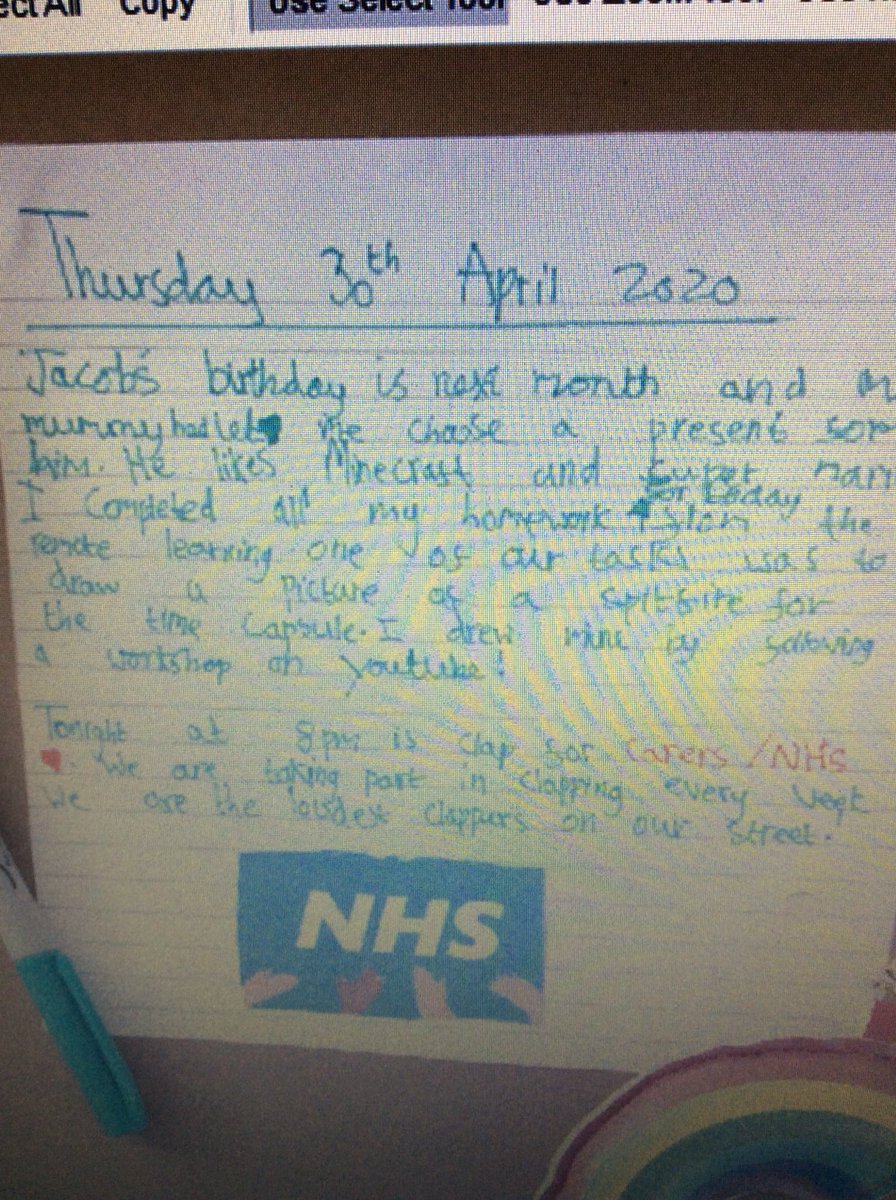 Copy
Use Select Tool
Thursday 30th April 2020
Jacob's birthday is next month and
mummy had let me choose a present for
him. He likes Minecraft and Super
I Completed all my homework for today
the
remote learning one of our tasks was to
draw a picture of a spitfire for
the time Capsule. I drew mine by following
a workshop on youtube!
Tonight at 8pm is clap for Carers/NHS
. We are taking part in clapping every week
We are the loudest clappers on our street.
NHS